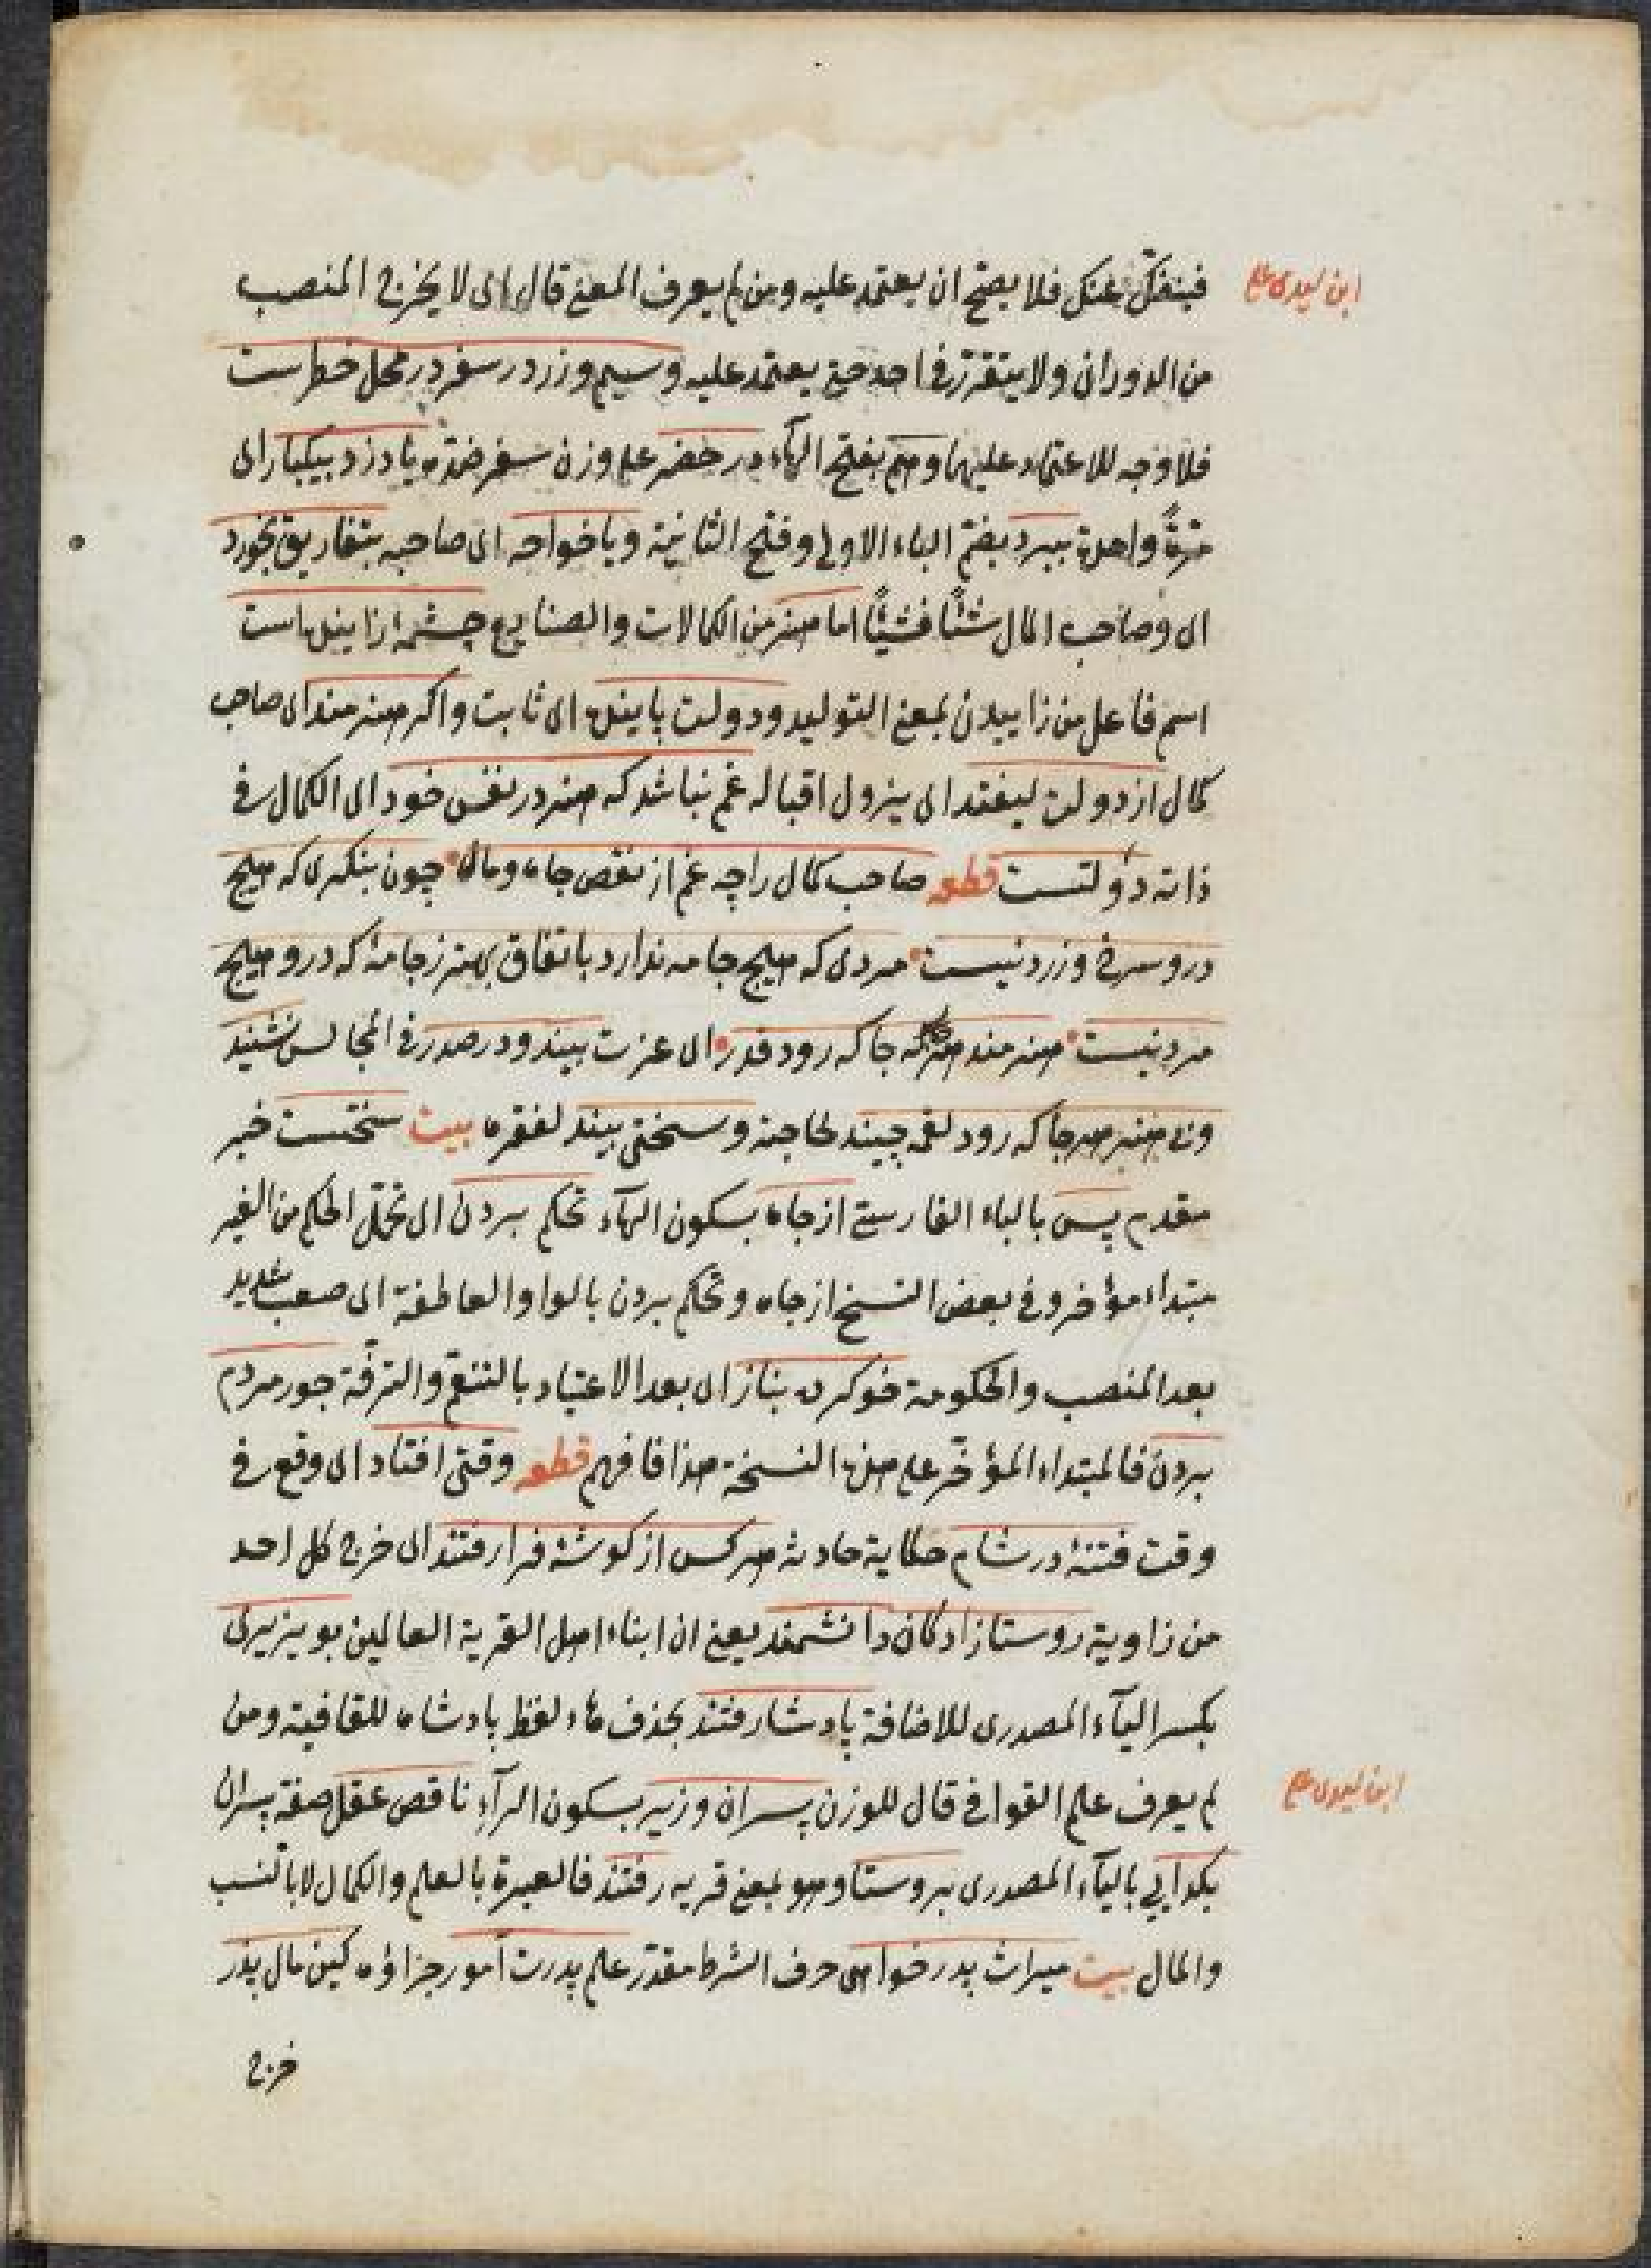 فينفكّ عنك فلا يصحّ ان يعتمد عليه ومن لم يعرف المعنى قال اى لا يخرج المنصب
من الدوران ولا يتقرّر فى احد حتى يعتمد عليه وسيم وزر در سفر در محل خطرست
فلا وجه للاعتماد عليهما وهم بفتح الهاء در حضر على وزن سفر ضدّه يا دزد بيكبار اى
مرّةً واحدة ببرد بضمّ الباء الاولى وفتح الثانية ويا خواجه اى صاحبه بتفاريق بخورد
اى وصاحب المال شئًا فشيئًا اما هنر من الكمالات والصنايع چشمه زاينده است
اسم فاعل من زاييدن بمعنى التوليد ودولت پاينده اى ثابت واكر هنرمند اى صاحب
كمال از دولت بيفتد اى يزول اقباله غم نباشد كه هنر در نفس خود اى الكمال فى
ذاته دولتست قطعه صاحب كمال را چه غم از نقص جاه ومال چون بنكرى كه هيچ
درو سرخ وزرد نيست مردى كه هيچ جامه ندارد باتفاق بهتر ز جامۀ كه درو هيچ
مرد نيست هنرمند هر جا كه رود قدر اى عزت بيند ودر صدر فى المجالس نشيند
وبى هنر هر جا كه رود لقمه چيند لحاجته وسختى بيند لفقره بيت سختست خبر
مقدم پس بالباء الفارسى از جاه بسكون الهآء تحكم بردن اى تحمّل الحكم من الغير
مبتداء مؤخر وفى بعض النسخ از جاه وتحكم بردن بالواو العاطفة اى صعب شديد
بعد المنصب والحكومة خو كرده بناز اى بعد الاعتياد بالتنعّم والترفّه جور مردم
بردن فالمبتداء المؤخّر على هذه النسخة هذا فافهم قطعه وقتى افتاد اى وقع فى
وقت فتنۀ در شام حكاية حادثه هر كس از كوشۀ فرا رفتند اى خرج كل احد
من زاوية روستازادكان دانشمند يعنى ان ابناء اهل القرية العالمين بوزيرى
بكسر اليآء المصدرى للاضافة پادشا رفتند بحذف هاء لفظ پادشاه للقافية ومن
لم يعرف علم القوافى قال للوزن پسران وزير بسكون الرآء ناقص عقل صفة پسران
بكدايى باليآء المصدرى بروستا وهو بمعنى قريه رفتند فالعبرة بالعلم والكمال لا بالنسب
والمال بيت ميراث پدر خواهى حرف الشرط مقدّر علم پدرت آموز جزاؤه كين مال پدر
خرج